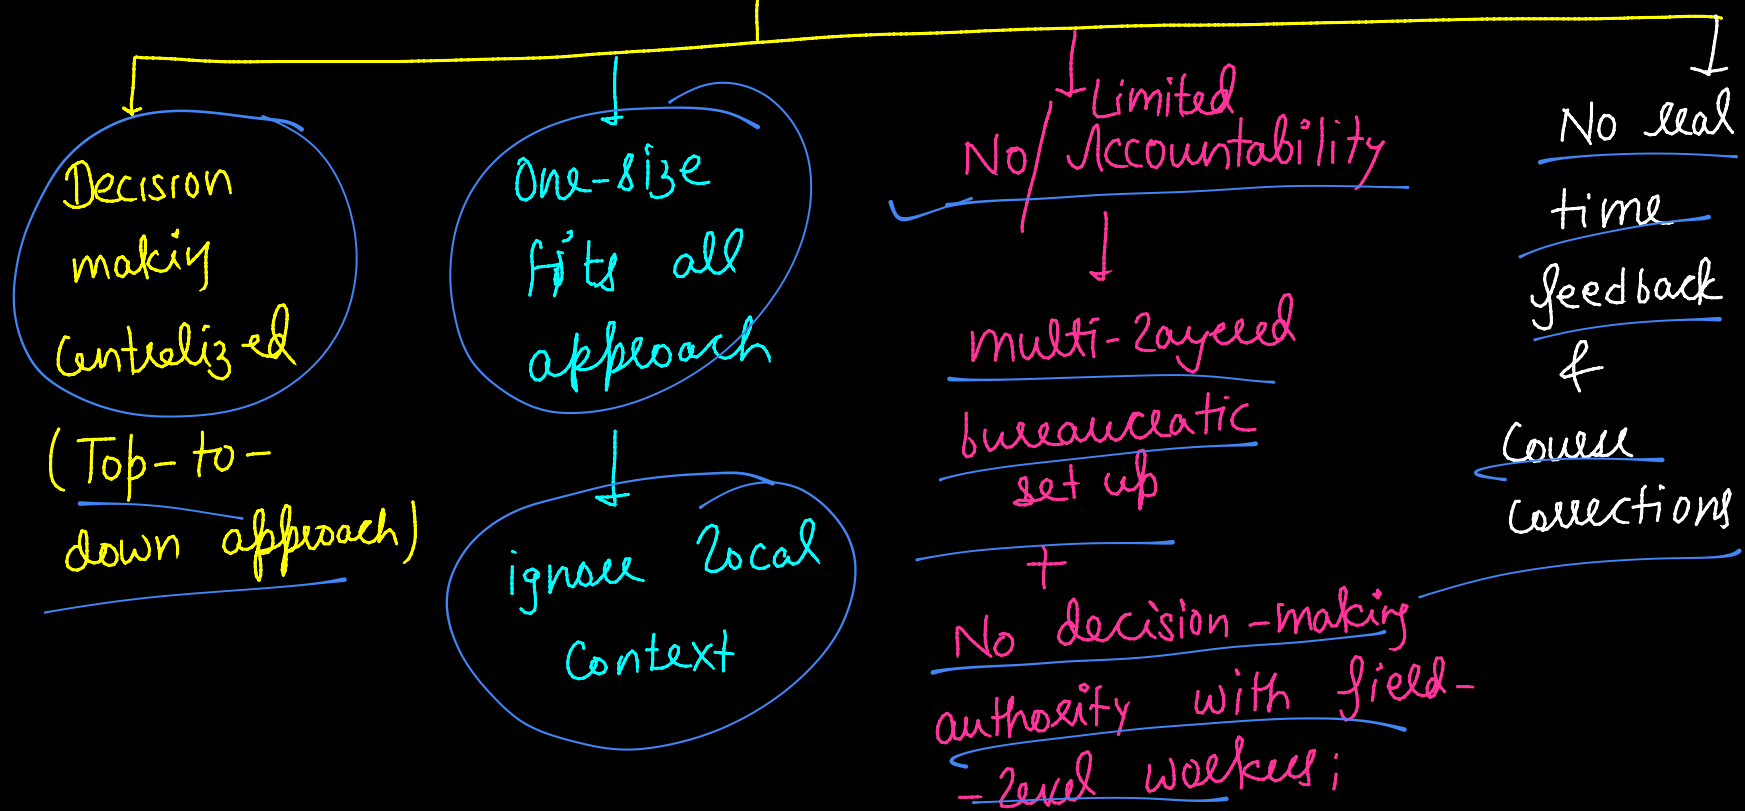 Decision
making
Centralized
(Top-to-
down approach)
One-size
fits all
approach
ignore local
Context
Limited
No/ Accountability
multi-layered
bureaucratic
set up
+
No decision-making
authority with field-
-level workers;
No real
time
feedback
&
Course
corrections